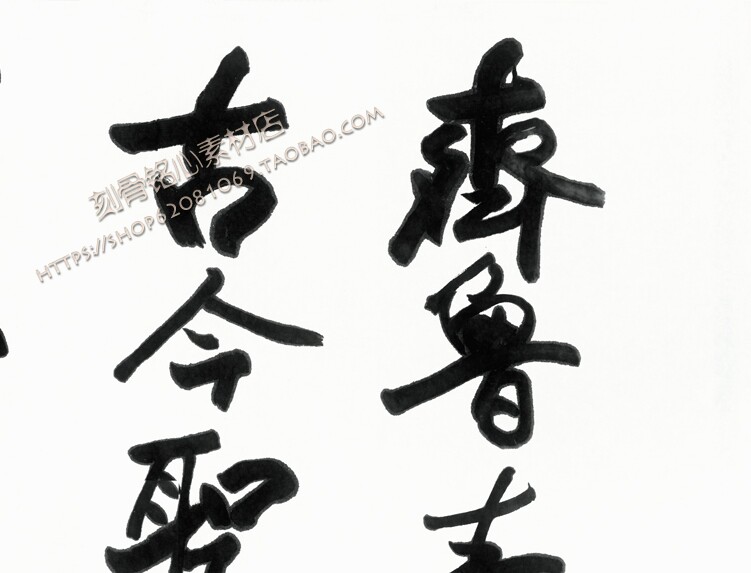 齊魯
古今聖
刻骨铭心素材店
HTTPS://SHOP62081069.TAOBAO.COM